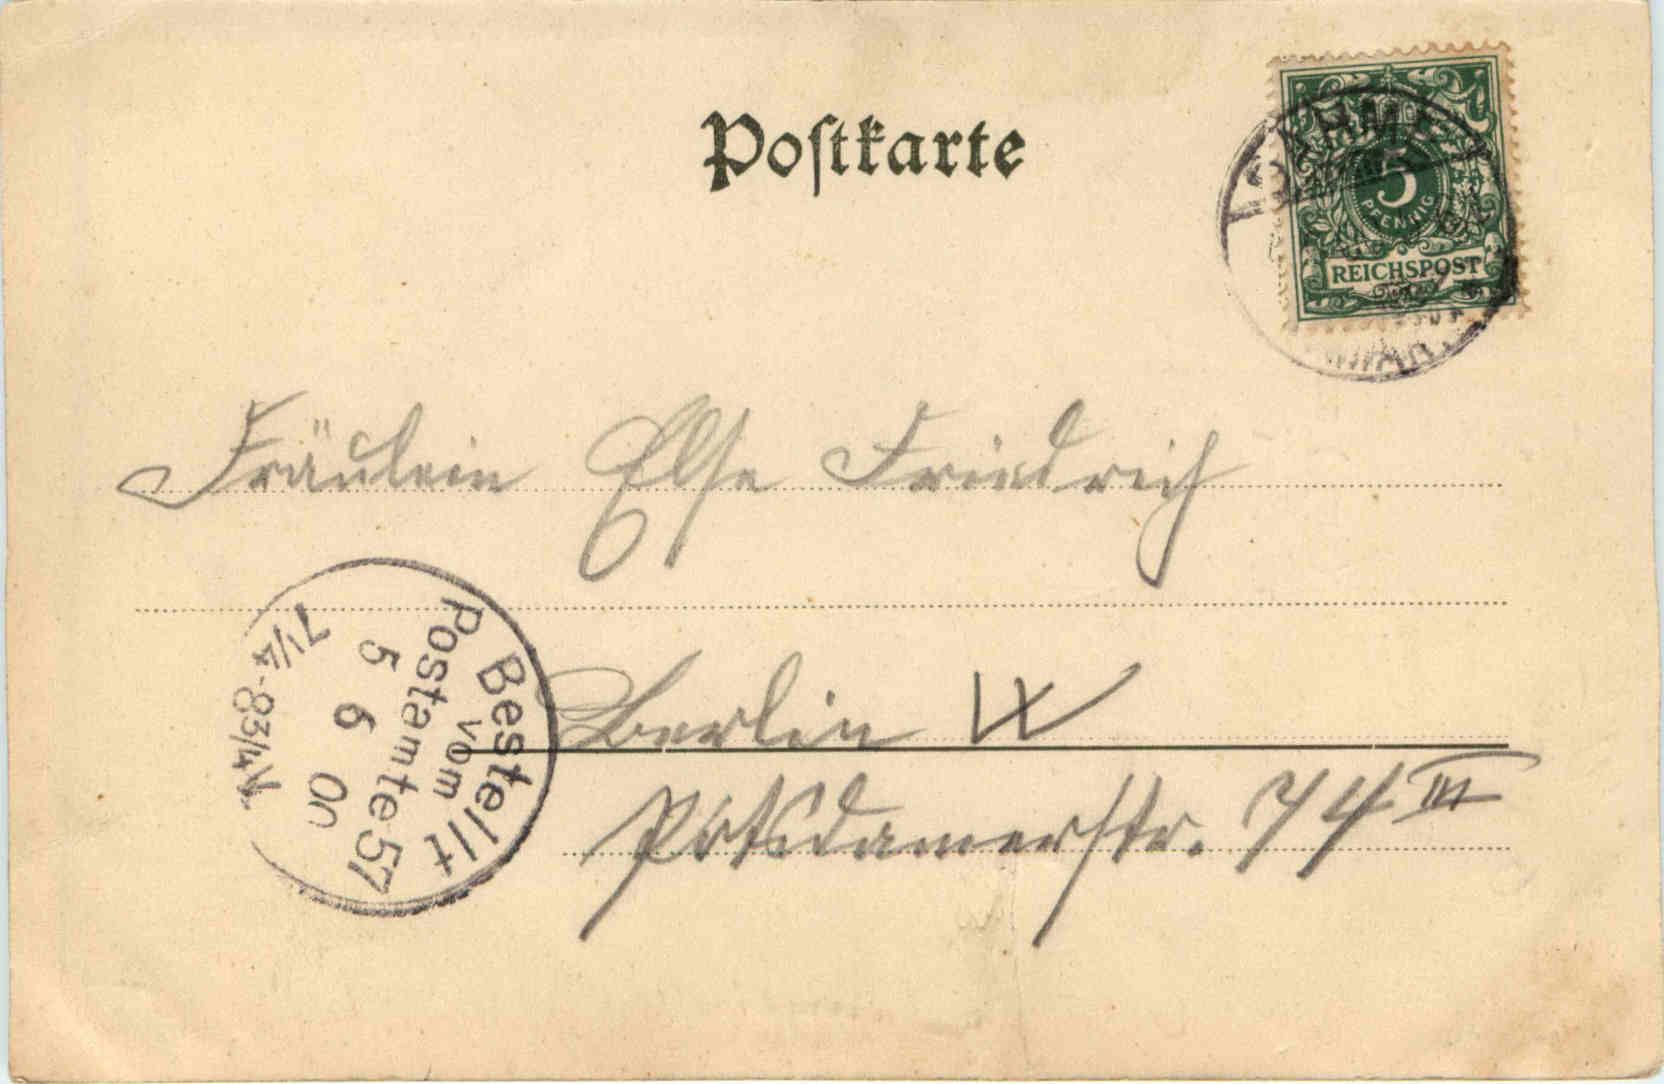 Postkarte
5
PFENNIG
REICHSPOST
Fräulein Else Friedrich
Berlin W
Potsdamerstr. 74 III
Bestellt
vom
Postamte 57
5 6 00
7 1/4-8 3/4 V.